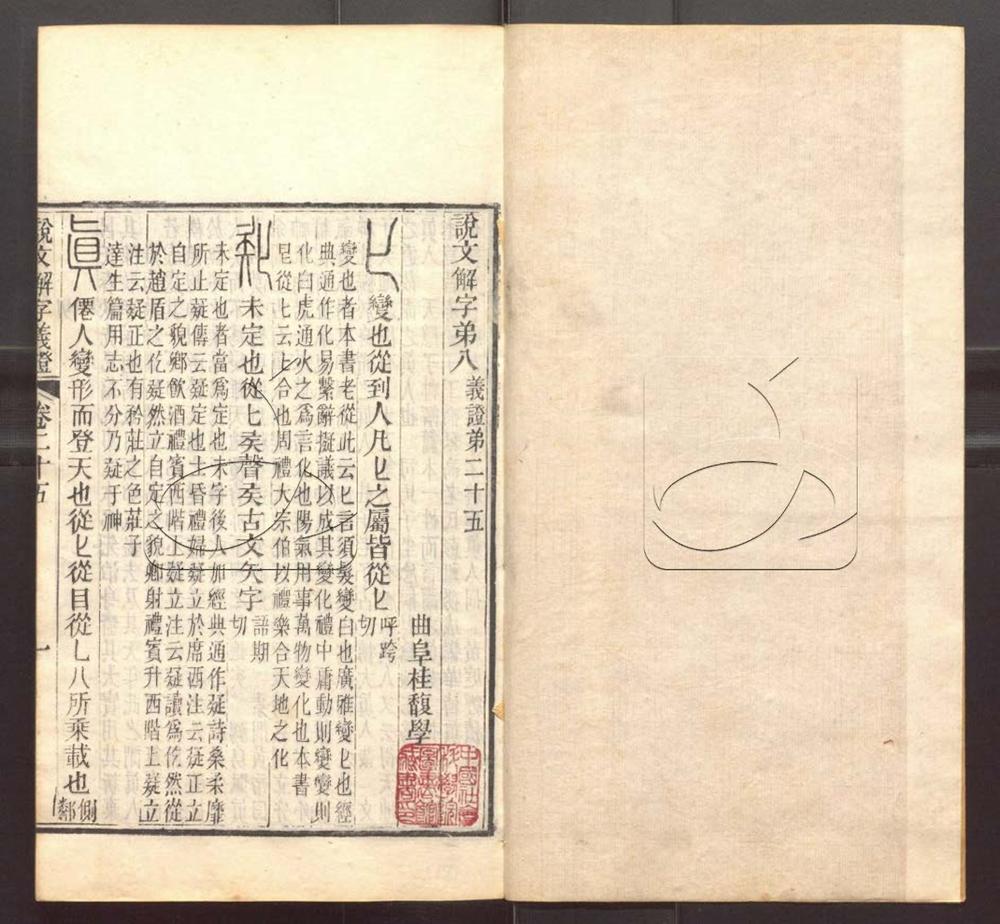 說文解字弟八 義證弟二十五
曲阜桂馥學
𠤎 變也從到人凡𠤎之屬皆從𠤎 呼跨切
變也者本書老從此云𠤎言須髮變白也廣雅變𠤎也經
典通作化易繫辭擬議以成其變化禮中庸動則變變則
化白虎通火之為言化也陽氣用事萬物變化也本書
從𠤎云上合也周禮大宗伯以禮樂合天地之化
未定也從𠤎矣聲矣古文矢字 語期切
未定也者當為定也未字後人加經典通作疑詩桑柔靡
所止疑傳云疑定也士昏禮婦疑立於席西注云疑正立
自定之貌鄉飲酒禮賓西階上疑立注云疑讀為仡然從
於趙盾之仡疑然立自定之貌鄉射禮賓升西階上疑立
注云疑正也有矜莊之色莊子
達生篇用志不分乃疑于神
眞 僊人變形而登天也從𠤎從目從乚八所乘載也 側鄰
說文解字義證 卷二十五 一
中國社會科學院圖書館藏書印